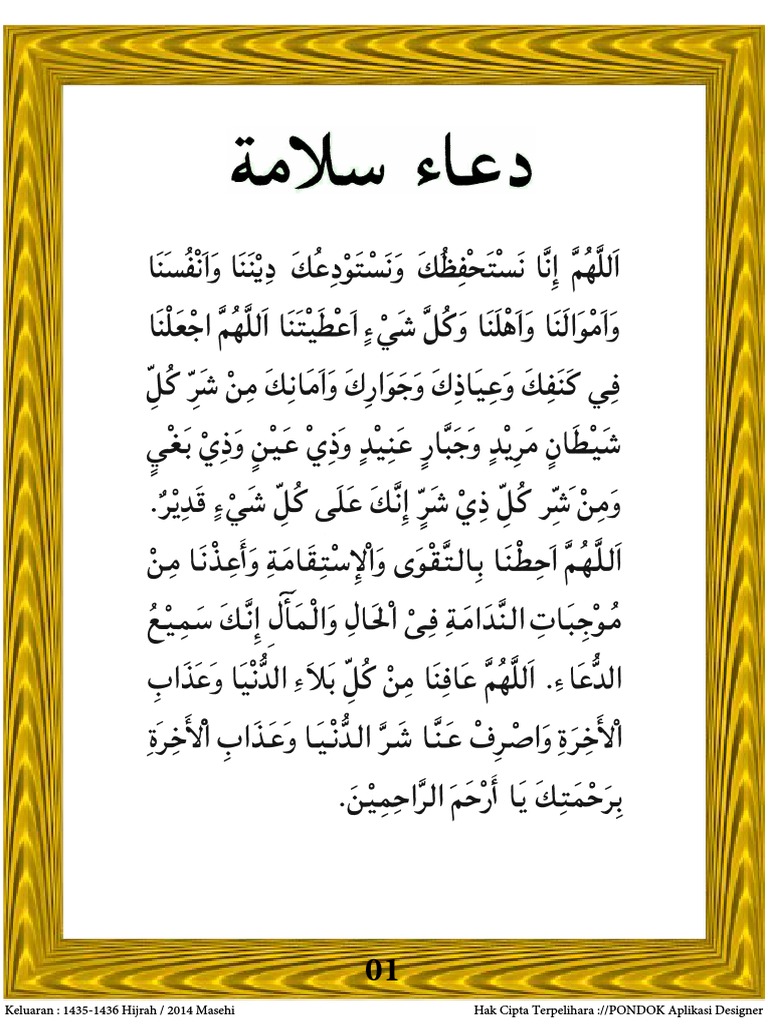 دعاء سلامة
اَللَّهُمَّ إِنَّا نَسْتَحْفِظُكَ وَنَسْتَوْدِعُكَ دِيْنَنَا وَاَنْفُسَنَا
وَاَمْوَالَنَا وَاَهْلَنَا وَكُلَّ شَيْءٍ اَعْطَيْتَنَا اَللَّهُمَّ اجْعَلْنَا
فِي كَنَفِكَ وَعِيَاذِكَ وَجَوَارِكَ وَاَمَانِكَ مِنْ شَرِّ كُلِّ
شَيْطَانٍ مَرِيْدٍ وَجَبَّارٍ عَنِيْدٍ وَذِيْ عَيْنٍ وَذِيْ بَغْيٍ
وَمِنْ شَرِّ كُلِّ ذِيْ شَرٍّ إِنَّكَ عَلَى كُلِّ شَيْءٍ قَدِيْرٌ.
اَللَّهُمَّ اَحِطْنَا بِالتَّقْوَى وَاْلإِسْتِقَامَةِ وَأَعِذْنَا مِنْ
مُوْجِبَاتِ النَّدَامَةِ فِىْ اْلحَالِ وَاْلْمَأَٓلِ إِنَّكَ سَمِيْعُ
الدُّعَاءِ. اَللَّهُمَّ عَافِنَا مِنْ كُلِّ بَلاَءِ الدُّنْيَا وَعَذَابِ
اْلأَخِرَةِ وَاصْرِفْ عَنَّا شَرَّ الدُّنْيَا وَعَذَابِ اْلأَخِرَةِ
بِرَحْمَتِكَ يَا أَرْحَمَ الرَّاحِمِيْنَ.
01
Keluaran : 1435-1436 Hijrah / 2014 Masehi
Hak Cipta Terpelihara ://PONDOK Aplikasi Designer